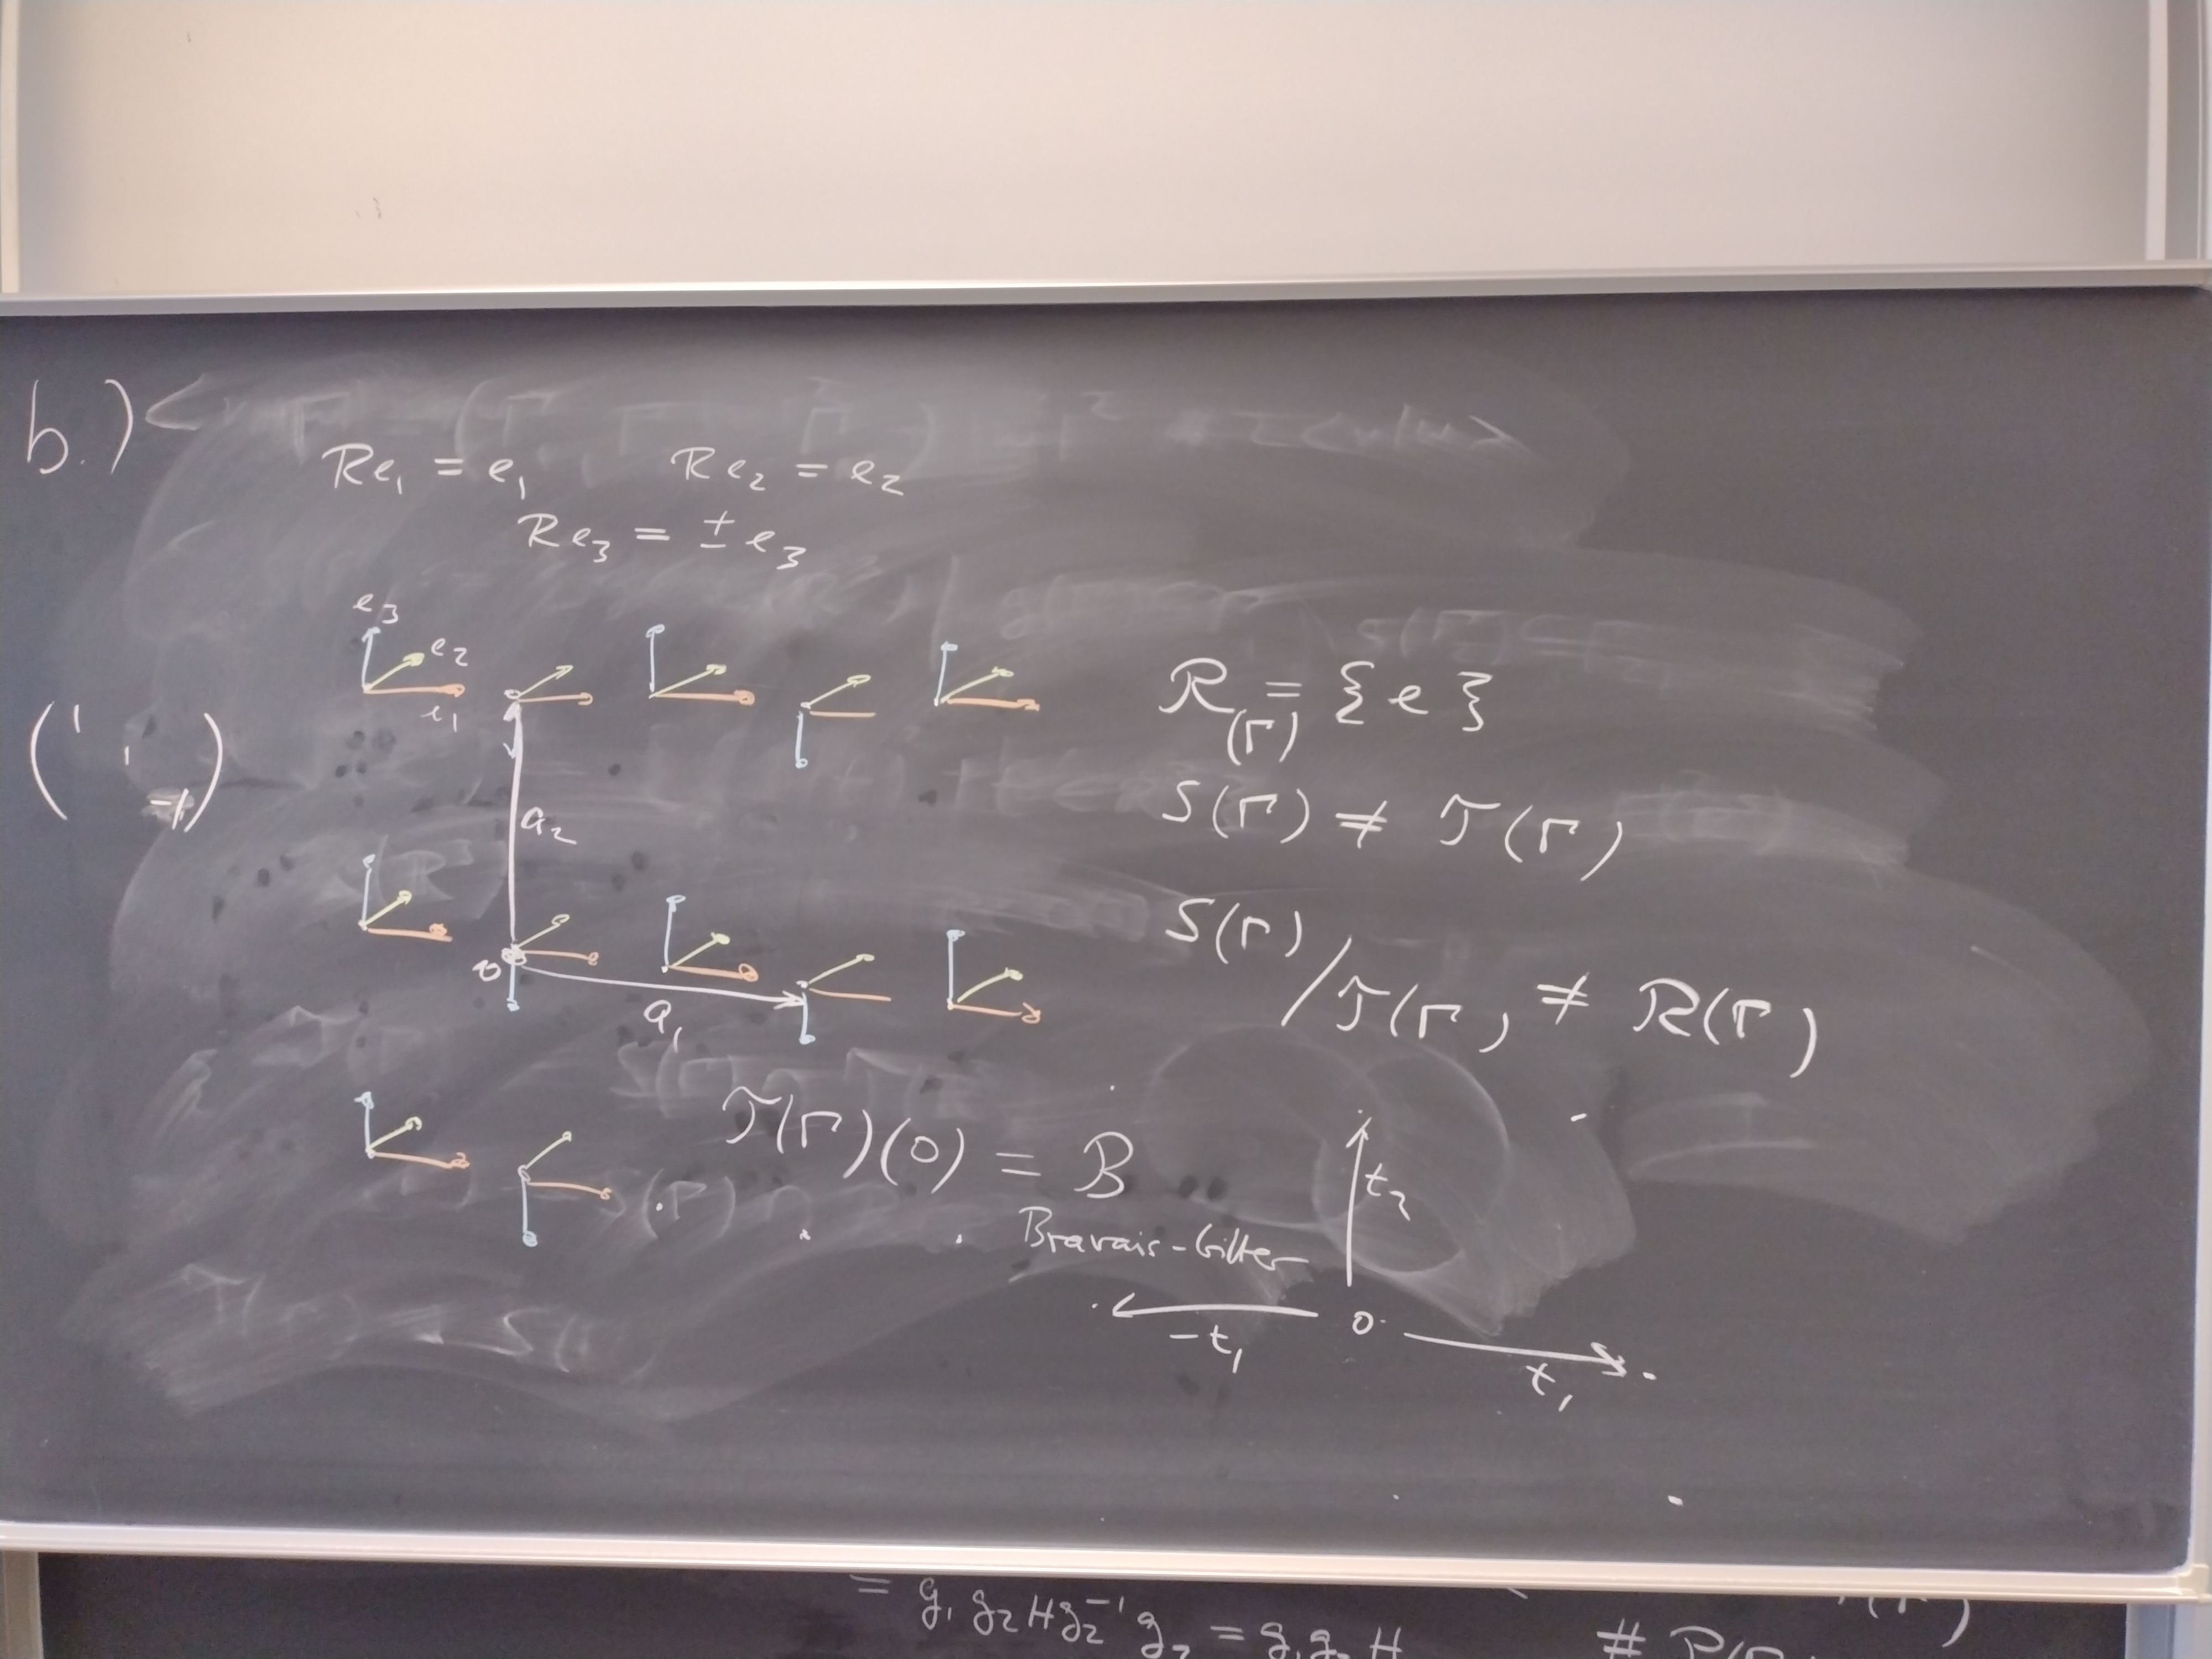 b.)
Re₁ = e₁   Re₂ = e₂
Re₃ = ± e₃
e₃
e₂
e₁
R(Γ) = {e}
(1 1 -1)
S(Γ) ≠ T(Γ)
a₂
S(Γ)/T(Γ) ≠ R(Γ)
0
a₁
T(Γ)(0) = B
Bravais-Gitter
t₂
-t₁
0
t₁
= g₁ g₂ H g₂⁻¹ g₂ = g₁ g₂ H